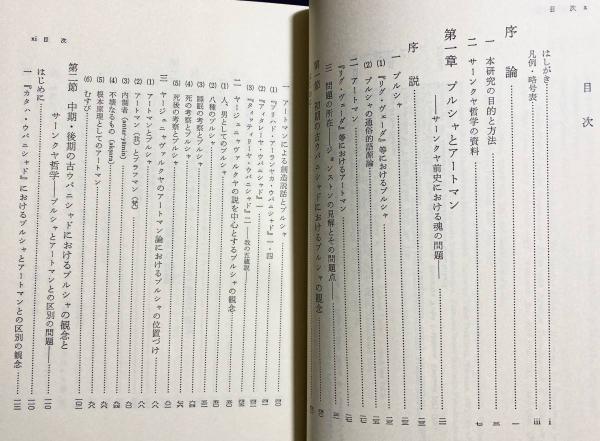 目次 x
目次
はしがき i
凡例・略号表 iii
序論
一 本研究の目的と方法
二 サーンクヤ哲学の資料 七
第一章 プルシャとアートマン
——サーンクヤ前史における魂の問題——
序説
一 プルシャ
(1) 『リグ・ヴェーダ』等におけるプルシャ
(2) プルシャの通俗的語源論
二 アートマン
『リグ・ヴェーダ』等におけるアートマン
三 問題の所在——ジョンストンの見解とその問題点——
第一節 初期の古ウパニシャドにおけるプルシャの観念
xi 目次
一 アートマンによる創造説話とプルシャ
(1) 『ブリハド・アーランヤカ・ウパニシャド』一・四
(2) 『アイタレーヤ・ウパニシャド』一
(3) 『タイッティリーヤ・ウパニシャド』二——我の五蔵説——
二 ヤージュニャヴァルクヤの説を中心とするプルシャの観念
(1) 人、男としてのプルシャ
(2) 八種のプルシャ
(3) 睡眠の考察とプルシャ
(4) 死の考察とプルシャ
(5) 死後の考察とプルシャ
三 ヤージュニャヴァルクヤのアートマン論におけるプルシャの位置づけ
(1) アートマンとプルシャ
(2) アートマン(我)とブラフマン(梵)
(3) 内制者(antar-yāmin)
(4) 不壊なるもの(akṣara)
(5) 根本原理としてのアートマン
(6) むすび
第二節 中期・後期の古ウパニシャドにおけるプルシャの観念と
サーンクヤ哲学——プルシャとアートマンとの区別の問題——
はじめに
一 『カタハ・ウパニシャド』におけるプルシャとアートマンとの区別の観念